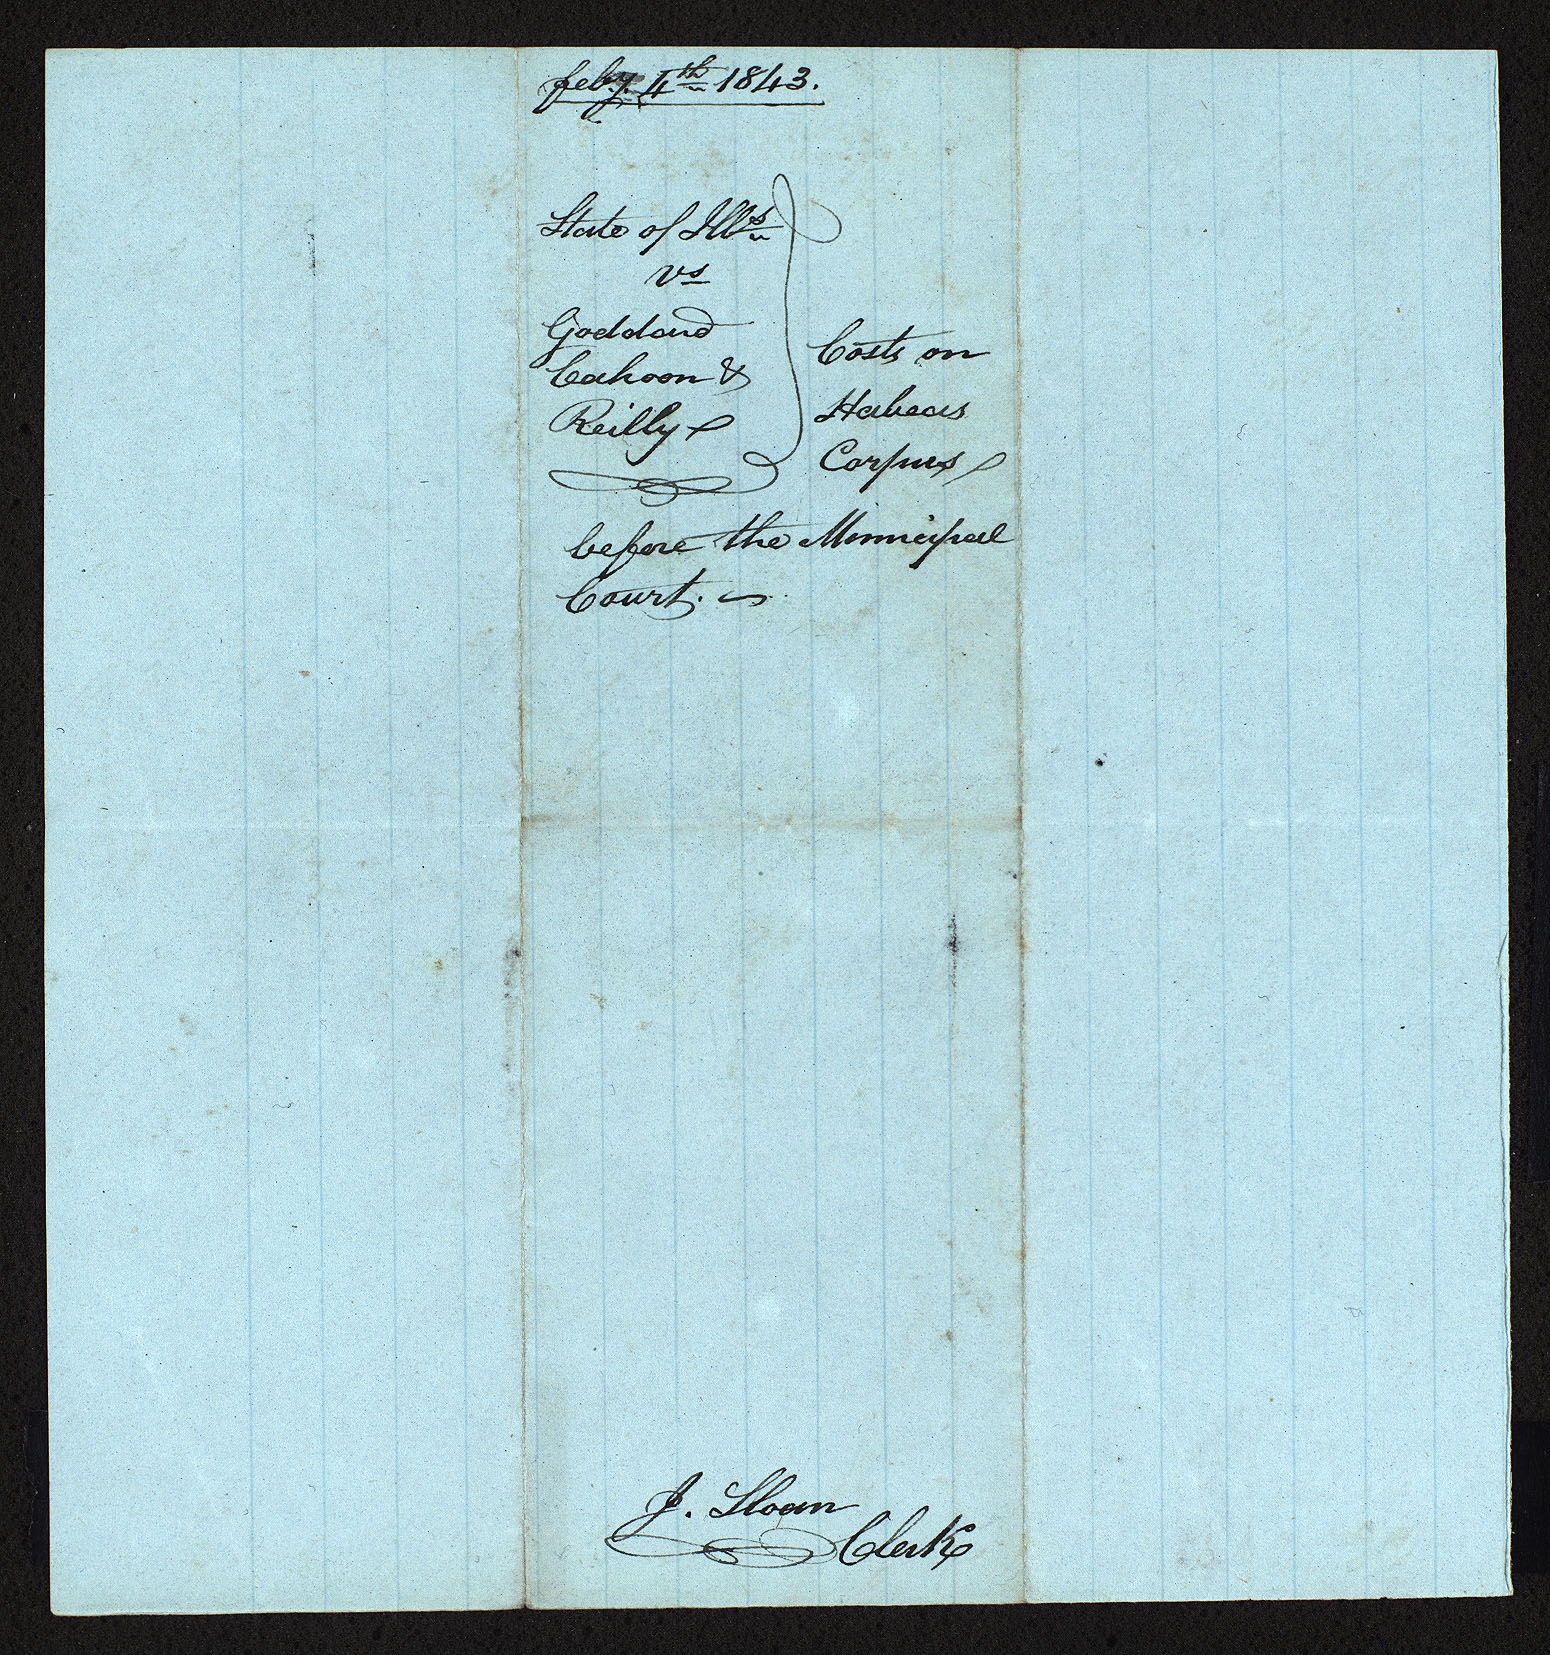 feby. 4th 1843.
State of Ills
vs
Goddard
Cahoon &
Reilly
Costs on
Habeas
Corpus
before the Municipal
Court.
J. Sloan
Clerk